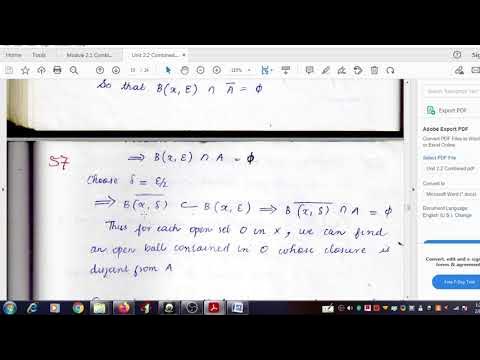 Home Tools Module 2.1 Combi... Unit 2.2 Combined... ×
Sign
125%
So that B(x, ε) ∩ A̅ = ϕ
57
⟹ B(x, ε) ∩ A = ϕ.
Choose δ = ε/2
⟹ \overline{B(x, δ)} ⊂ B(x, ε) ⟹ \overline{B(x, δ)} ∩ A = ϕ
Thus for each open set O in X, we can find
an open ball contained in O whose closure is
disjoint from A
Export PDF
Adobe Export PDF
Convert PDF Files to Word
or Excel Online
Select PDF File
Unit 2.2 Combined.pdf
Convert to
Microsoft Word (*.docx)
Document Language:
English (U.S.) Change
Convert, edit and e-sign
forms & agreements
Free 7-Day Trial